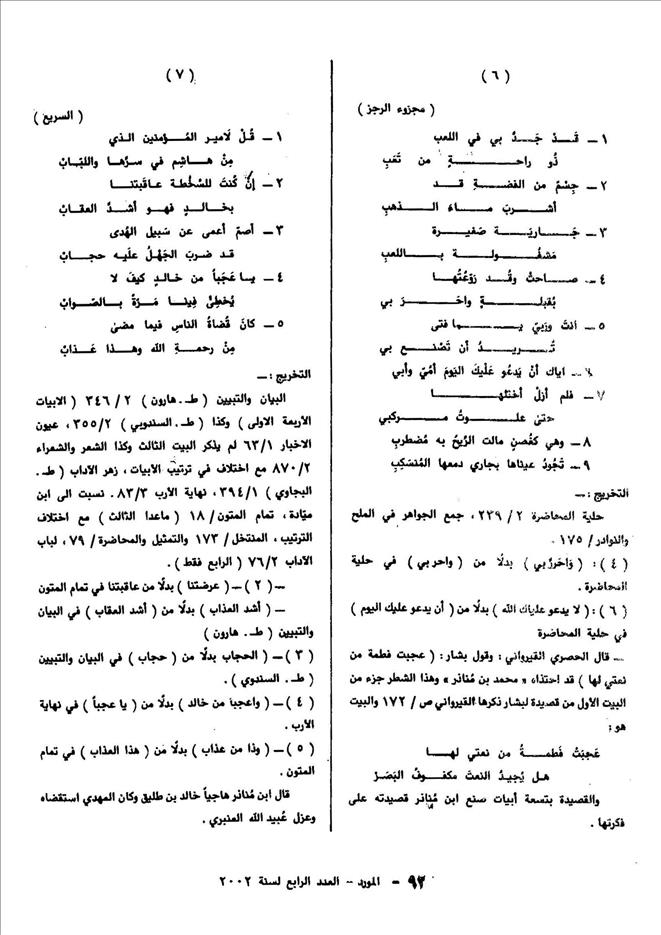 ( ٦ )
( مجزوء الرجز )
١ ــ قَــدْ جَــدَّ بي في اللعب
ذُو راحـــةٍ من تَعَبِ
٢ ــ جِسْم من الفضــة قــد
أشــربَ مــاءَ الــذهبِ
٣ ــ جَــاريَــة صَغيــرة
مَشغُــولــة بــاللعبِ
٤ ــ صــاحتْ وقُــد رَوّعْتُهــا
بقُبلــةٍ واحَــرَ بي
٥ ــ أنتَ وَرَبيّ يــا فتى
تُــريــدُ أن تَصْنــع بي
اياك أنْ يَدعُو عَلَيْكَ اليَومَ أُمّي وأبي
فلم أزلْ أختلُهــا
حتىٰ علــوتُ مــركبي
٨ ــ وهي كغُصنٍ مالت الرّيحُ به مُضطربِ
٩ ــ تَجُودُ عيناها بجاري دمعها المُنسَكِبِ
التخريج :ــ
حلية المحاضرة ٢ / ٢٣٩ ، جمع الجواهر في الملح
والنوادر / ١٧٥ .
( ٤ ) : ( وَاحَرَبي ) بدلًا من ( واحربي ) في حلية
المحاضرة .
( ٦ ) : ( لا يدعو عليك الله ) بدلًا من ( أن يدعو عليك اليوم )
في حلية المحاضرة
ــ قال الحصري القيرواني : وقول بشار : ( عجبت فطمة من
نعتي لها ) قد احتذاه « محمد بن مُناذر » وهذا الشطر جزء من
البيت الأول من قصيدة لبشار ذكرها القيرواني ص / ١٧٢ والبيت
هو :
عَجِبَتْ فَطمــةُ من نعتي لهــا
هل يُجيدُ النعتَ مكفوفُ البَصَرْ
والقصيدة بتسعة أبيات صنع ابن مُناذر قصيدته على
فكرتها .
( ٧ )
( السريع )
١ ــ قُــلْ لأميــر المُــؤمنين الــذي
مِنْ هــاشِم في سرّها واللبَابْ
٢ ــ إنْ كُنتَ للسُخْطة عاقَبتنــا
بخــالــدٍ فهــو أشــدُّ العقــابْ
٣ ــ أصمّ أعمى عن سَبيل الهُدى
قد ضربَ الجَهْلُ علَيه حجــابْ
٤ ــ يــا عَجَباً من خالدٍ كيفَ لا
يُخطىءُ فِينــا مَرّةً بــالصّوابْ
٥ ــ كانَ قُضاةُ الناسِ فيما مضىٰ
مِنْ رحمــةِ الله وهــذا عَــذابْ
التخريج :ــ
البيان والتبيين ( طـ . هارون ) ٢ / ٣٤٦ ( الابيات
الأربعة الاولى ) وكذا ( طـ . السندوبي ) ٢/ ٣٥٥ ، عيون
الاخبار ١/ ٦٣ لم يذكر البيت الثالث وكذا الشعر والشعراء
٢/ ٨٧٠ مع اختلاف في ترتيب الأبيات ، زهر الآداب ( طـ .
البجاوي ) ١/ ٣٩٤ ، نهاية الأرب ٣/ ٨٣ . نسبت الى ابن
ميّادة ، تمام المتون / ١٨ ( ماعدا الثالث ) مع اختلاف
الترتيب ، المنتخل / ١٧٣ والتمثيل والمحاضرة / ٧٩ ، لباب
الآداب ٢/ ٧٦ ( الرابع فقط ) .
ــ ( ٢ ) ــ ( عرضتنا ) بدلًا من عاقبتنا في تمام المتون
ــ ( أشد العذاب ) بدلًا من ( أشد العقاب ) في البيان
والتبيين ( طـ . هارون )
( ٣ ) ــ ( الحجاب بدلًا من ( حجاب ) في البيان والتبيين
( طـ . السندوي ) .
( ٤ ) ــ ( واعجباً من خالد ) بدلًا من ( يا عجباً ) في نهاية
الأرب .
( ٥ ) ــ ( وذا من عذاب ) بدلًا من ( هذا العذاب ) في تمام
المتون .
قال ابن مُناذر هاجياً خالد بن طليق وكان المهدي استقضاه
وعزل عُبيد الله العنبري .
٩٢ - المورد - العدد الرابع لسنة ٢٠٠٢